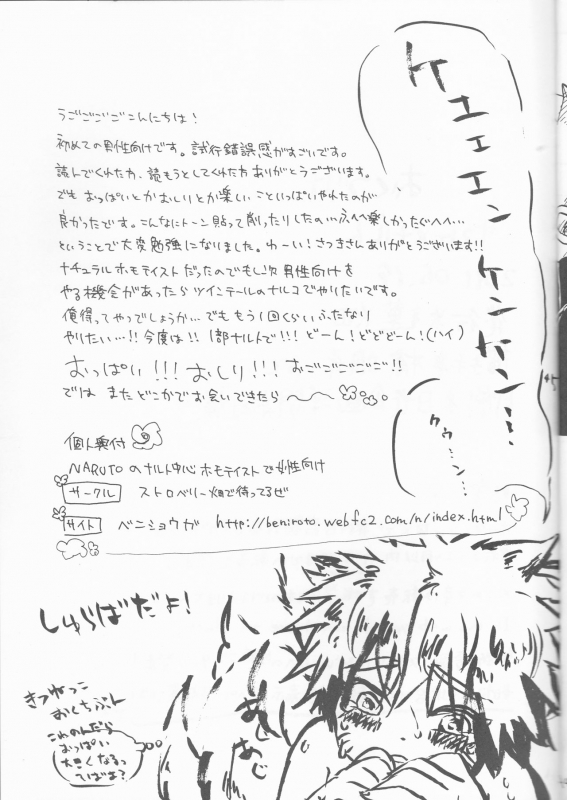 ケェェェン
ケンケン…
クゥ…ン…
うごごごごこんにちは!
初めての男性向けです。試行錯誤感がすごいです。
読んでくれた方、読もうとしてくれた方ありがとうございます。
でも おっぱいとかおしりとか楽しいこといっぱいやれたのが
良かったです。こんなにトーン貼って削ったりしたの…ふへへ楽しかったぐへへ…
ということで大変勉強になりました。わーい!さつきさんありがとうございます!!
ナチュラルホモテイストだったのでもし次男性向けを
やる機会があったらツインテールのナルコでやりたいです。
俺得ってやつでしょうか…でももう1回くらいふたなり
やりたい…!! 今度は!! 1部ナルトで!!! どーん!どどどーん!(ハイ)
おっぱい!!! おしり!!! おごごごごご!!
では またどこかでお会いできたら〜〜
個人奥付
NARUTOのナルト中心ホモテイストで女性向け
サークル ストロベリー畑で待ってるぜ
サイト ベニショウガ http://beniroto.web.fc2.com/n/index.html
しゅらばだよ!
きつねっこ
おくちぷん
これのんだら
おっぱい
大きくなるっ
てばよ?